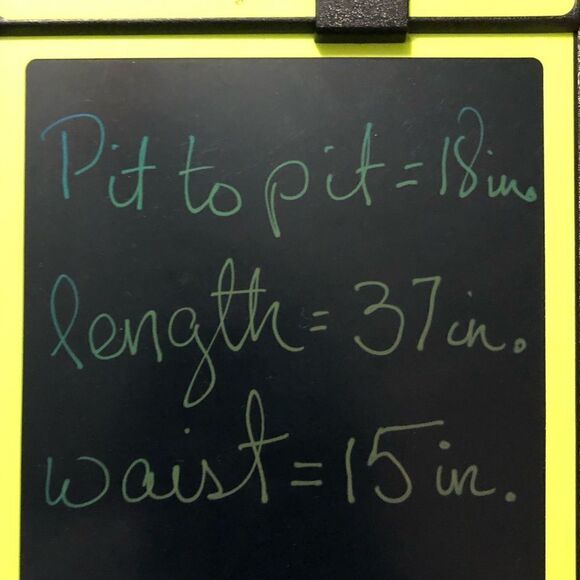 Pit to pit = 18 in.
length = 37 in.
waist = 15 in.